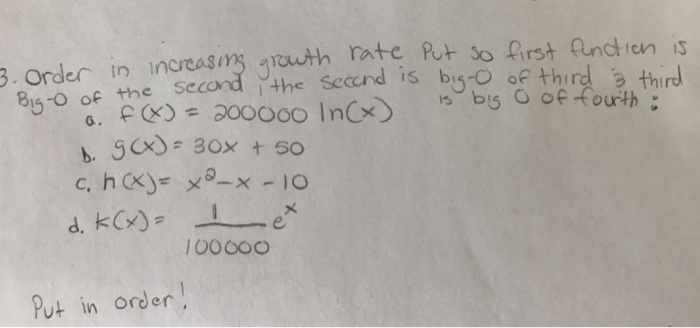 3. Order in increasing growth rate Put so first function is
Big-O of the second, the second is big-O of third & third
is big O of fourth :
a. f(x) = 200000 ln(x)
b. g(x) = 30x + 50
c. h(x) = x²-x-10
d. k(x) = 1/100000 eˣ
Put in order!